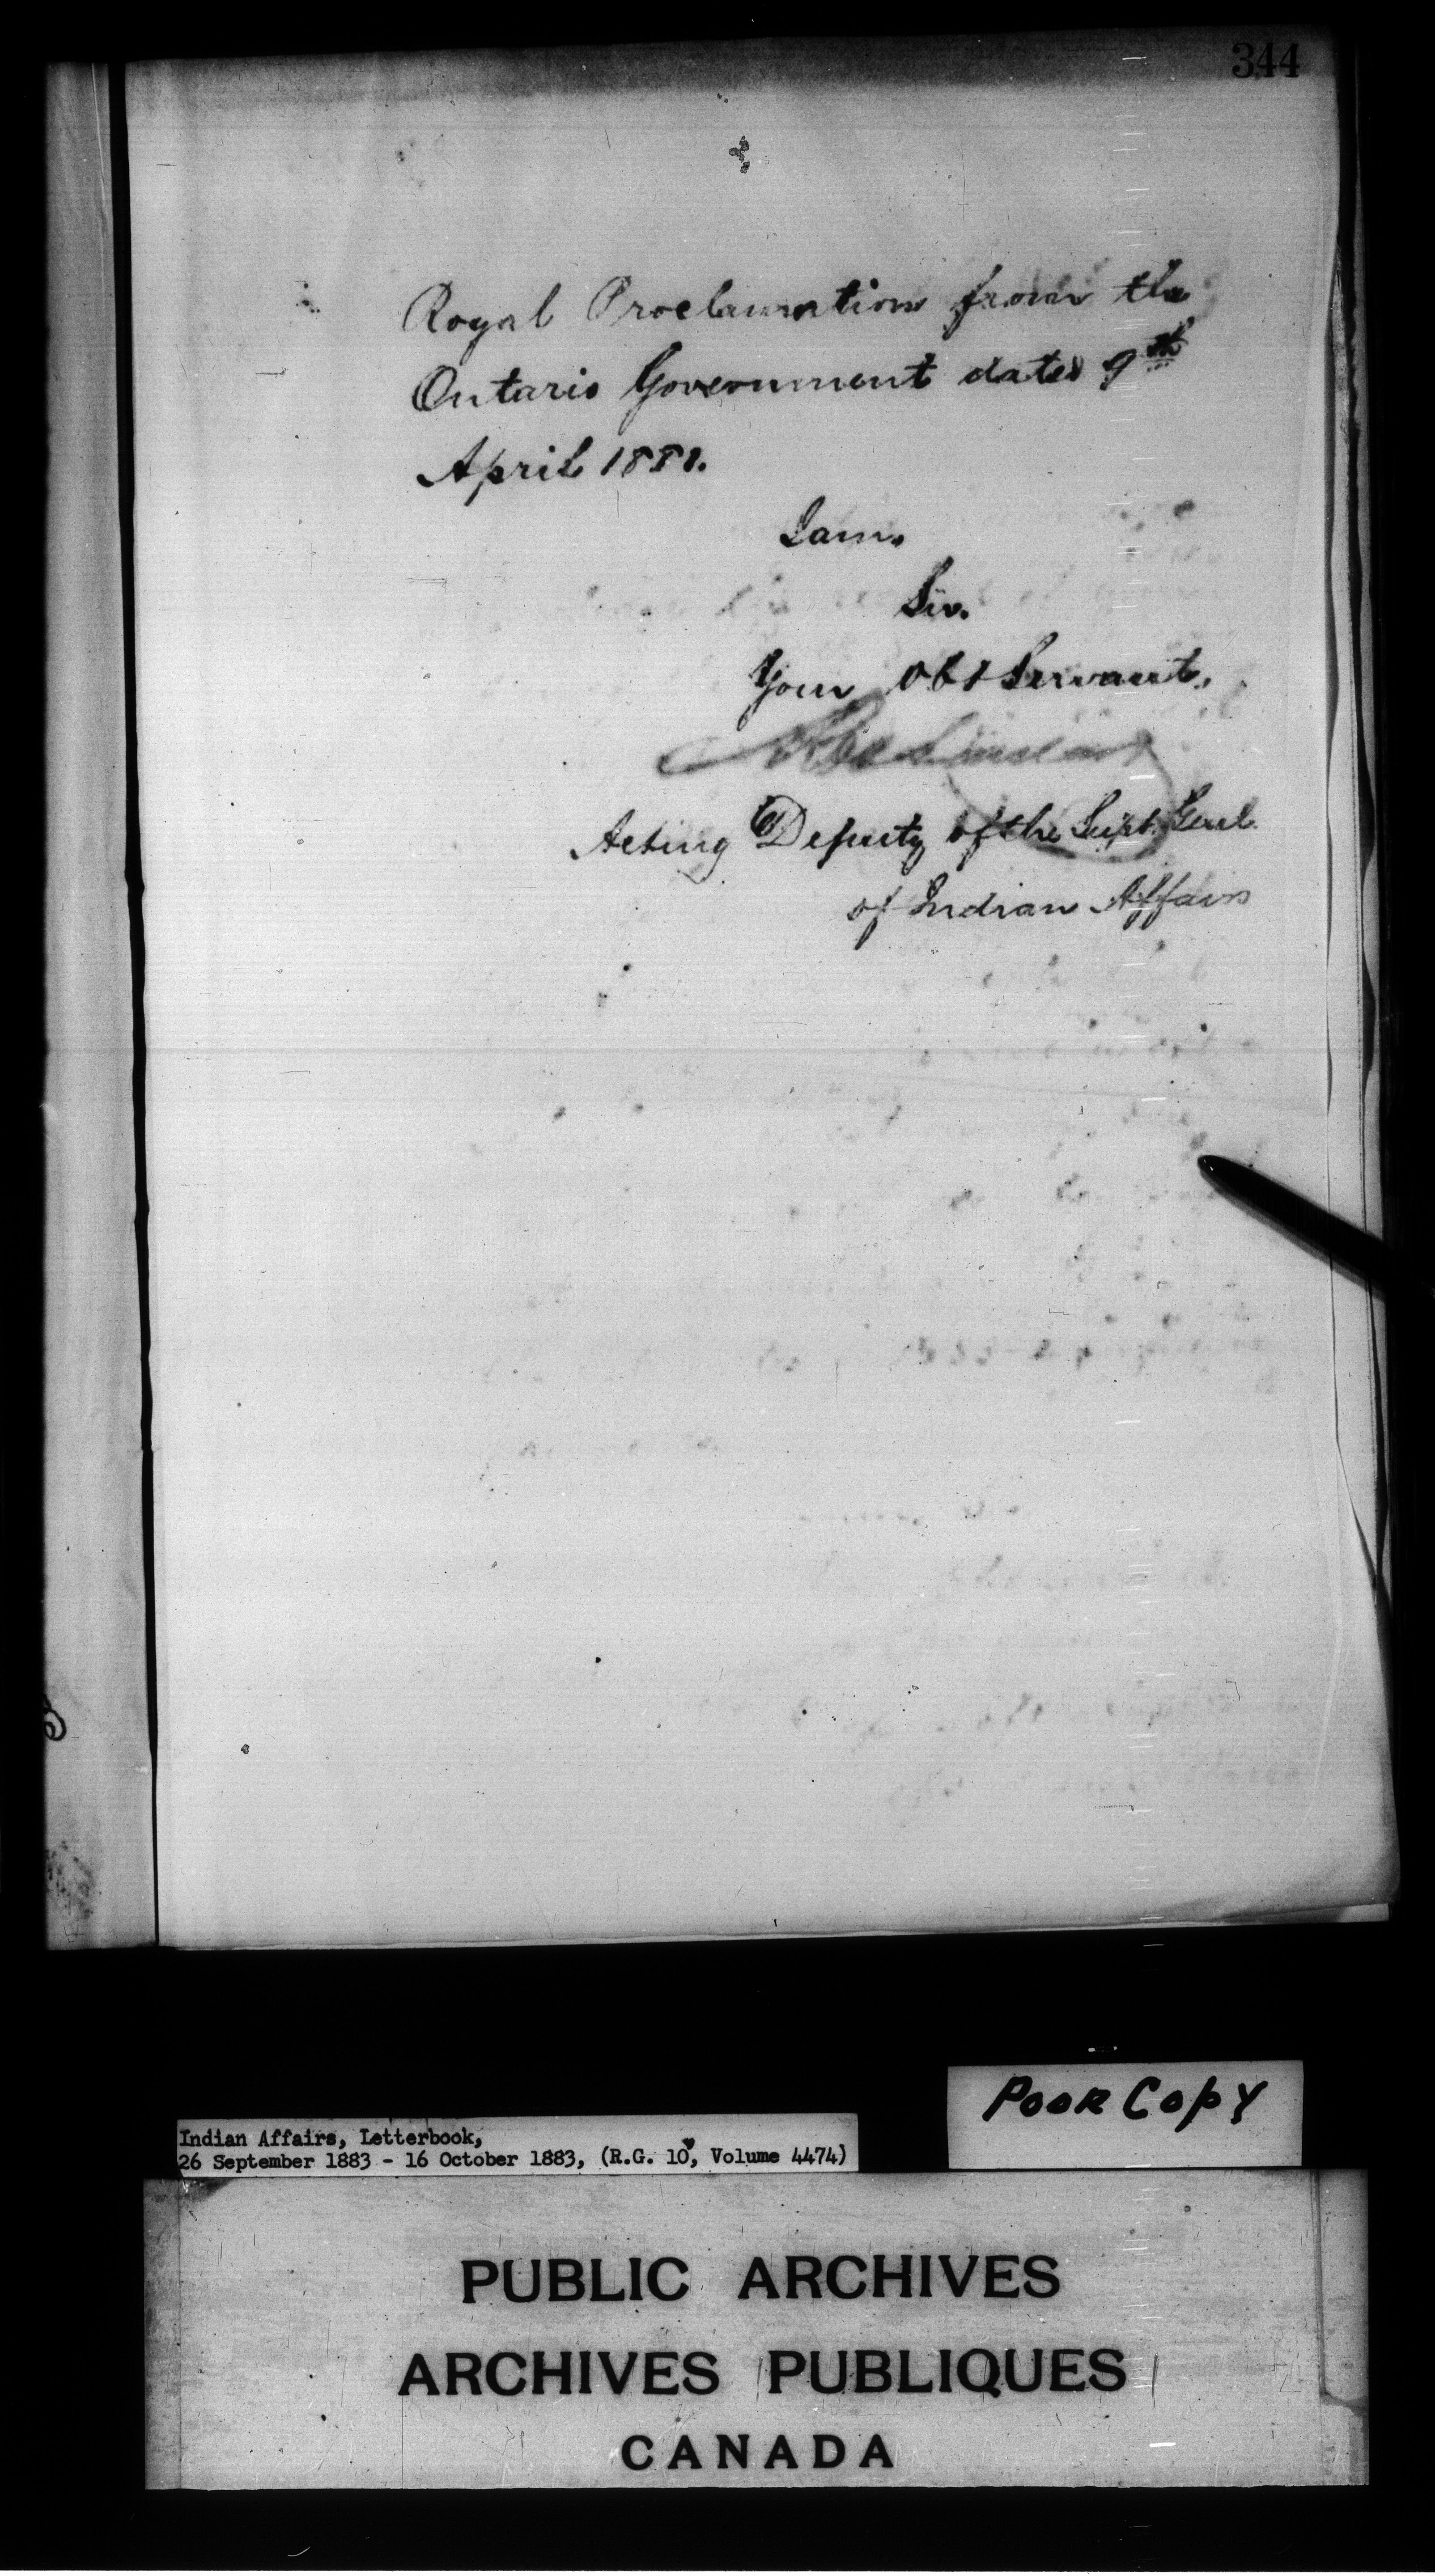 344
Royal Proclamation from the
Ontario Government dated 9th
April 1881.
I am.
Sir.
Your Obt Servant,
Acting Deputy of the Supt. Genl.
of Indian Affairs
POOR COPY
Indian Affairs, Letterbook,
26 September 1883 - 16 October 1883, (R.G. 10, Volume 4474)
PUBLIC ARCHIVES
ARCHIVES PUBLIQUES
CANADA